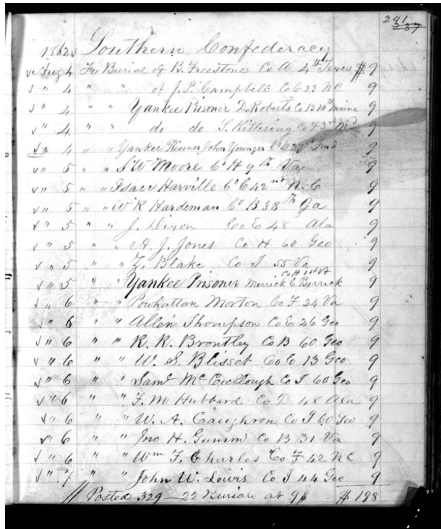 241
237
1862 Southern Confederacy
Aug 4 For Burial of B. Freestone Co A 4th Texas $ 9
" 4 " " of J. P. Campbell Co E 22 NC 9
" 4 " " Yankee Prisoner D. Roberts Co 10th Maine 9
" 4 " " do do S. Kittering Co 9
" 4 " " Yankee Prisoner John Younger Co Ind 9
" 5 " " W Moore Co H 9th Va 9
" 5 " " Isaac Harville Co E 42nd N.C 9
" 5 " " W R Hardeman Co B 38th Ga 9
" 5 " " J. Dixon Co E 48 Ala 9
" 5 " " A. J. Jones Co H 60 Geo 9
" 5 " " Z. Blake Co I 55 Va 9
" 5 " " Yankee Prisoner Merrick C. Co H 9
" 6 " " Powhattan Morton Co F 24 Va 9
" 6 " " Allen Thompson Co E 26 Geo 9
" 6 " " R. R. Brontley Co B 60 Geo 9
" 6 " " W. S. Blisset Co E 13 Geo 9
" 6 " " Saml McCullough Co I 60 Geo 9
" 6 " " F. M Hubbard Co D 48 Ala 9
" 6 " " W. A. Caughren Co I 60 Geo 9
" 6 " " Jno H. Co B 31 Va 9
" 6 " " Wm F. Charles Co F 42 NC 9
" 7 " " John W. Lewis Co I 44 Geo 9
// Posted 329 - 22 Burials at 9$ $ 198